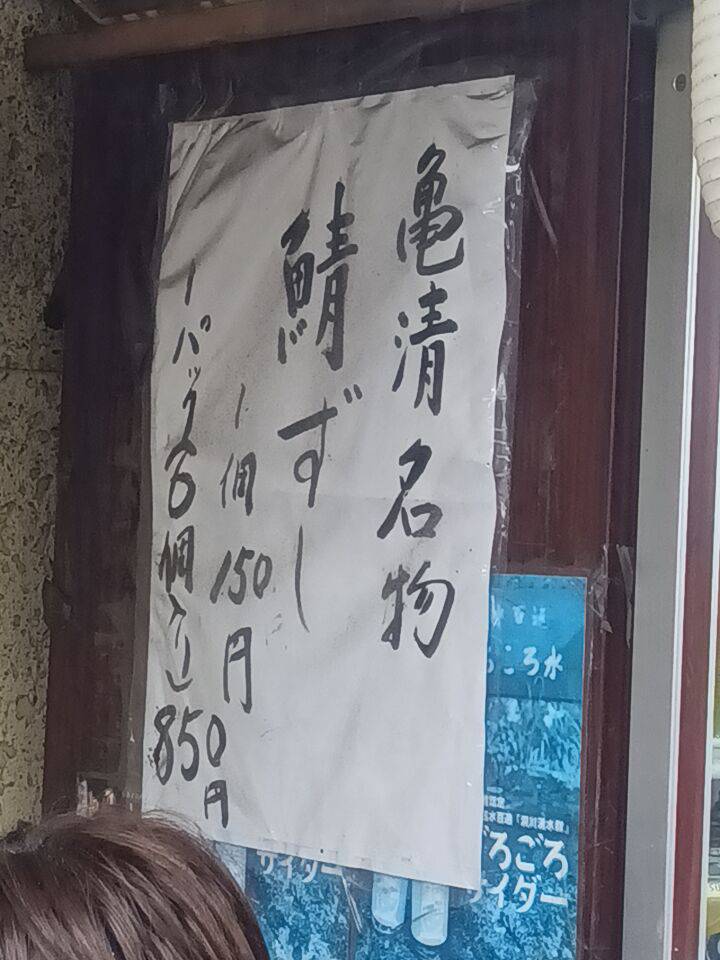 亀清名物
鯖ずし
1個150円
1パック6個入り850円
ころ水
ごろごろ
サイダー
サイダー